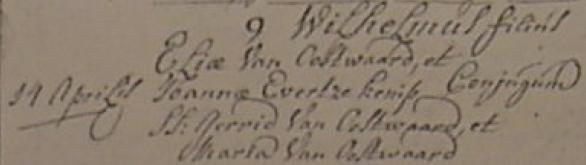 9 Wilhelmus filius
Eliæ Van Oostwaard, et
14 Aprilis Joannæ Evertze Conjugum
SS: Gerrid Van Oostwaard, et
Maria Van Oostwaard